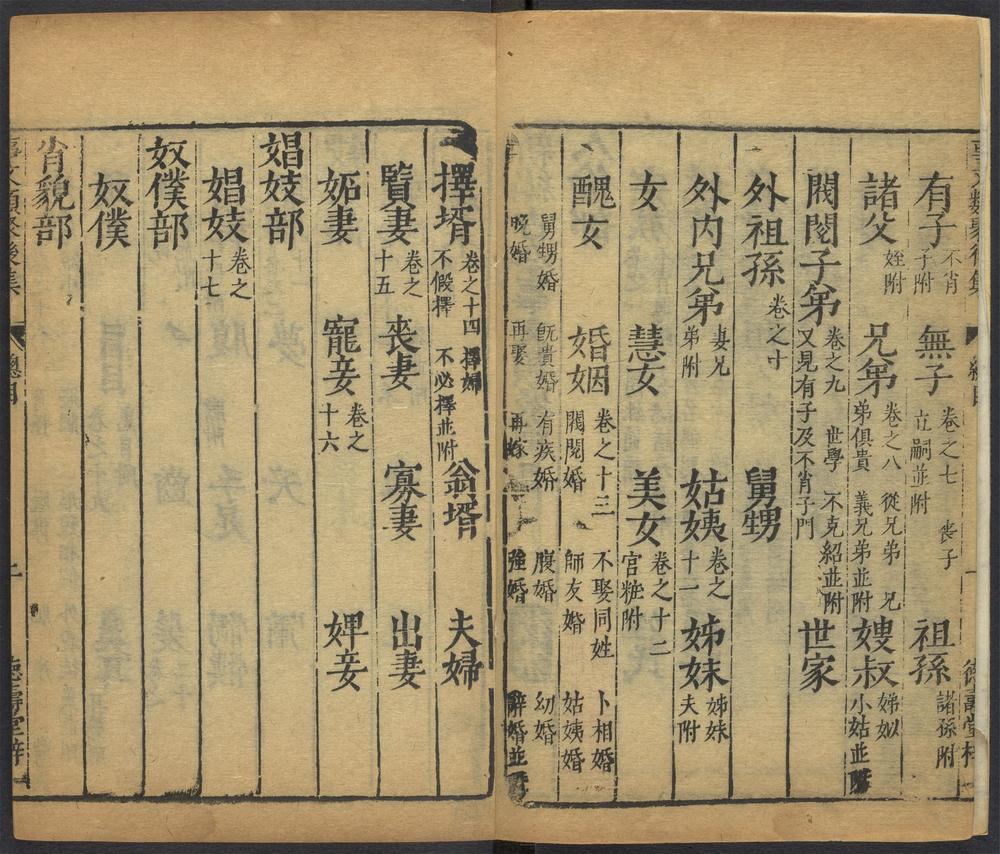 有子 不肖子附 無子 卷之七 喪子 立嗣並附 祖孫 諸孫附
諸父 姪附 兄弟 卷之八 從兄弟 兄弟俱貴 義兄弟並附 嫂叔 娣姒 小姑並附
閥閱子弟 卷之九 世學 不克紹並附 又見有子及不肖子門 世家
外祖孫 卷之十 舅甥
外內兄弟 妻兄弟附 姑姨 卷之十一 姊妹 姊妹夫附
女 慧女 美女 卷之十二 官粧附
醜女 婚姻 卷之十三 不娶同姓 卜相婚 閥閱婚 師友婚 姑姨婚
舅甥婚 旣貴婚 有疾婚 腹婚 幼婚 晚婚 再娶 再嫁 強婚 辭婚並附
擇壻 卷之十四 擇婦 不假擇 不必擇並附 翁壻 夫婦
賢妻 卷之十五 喪妻 寡妻 出妻
妬妻 寵妾 卷之十六 婢妾
娼妓部
娼妓 卷之十七
奴僕部
奴僕
肖貌部
事文類聚後集 總目 二 德壽堂梓